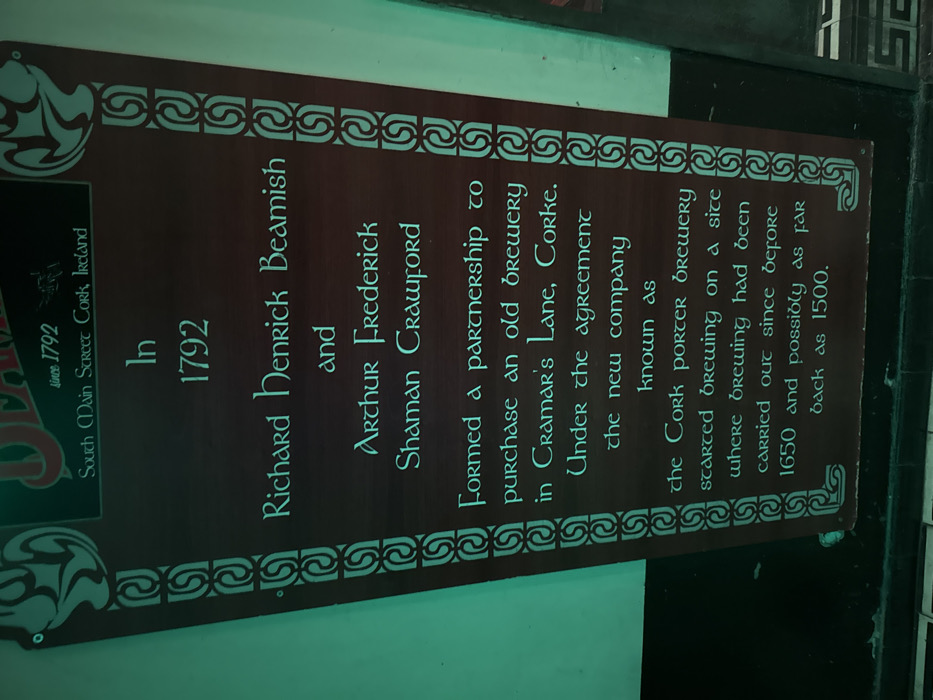 since 1792
South Main Street Cork, Ireland
In
1792
Richard Henrick Beamish
and
Arthur Frederick
Shaman Crawford
Formed a partnership to
purchase an old brewery
in Cramar's Lane, Corke.
Under the agreement
the new company
known as
the Cork porter brewery
started brewing on a site
where brewing had been
carried out since before
1650 and possibly as far
back as 1500.